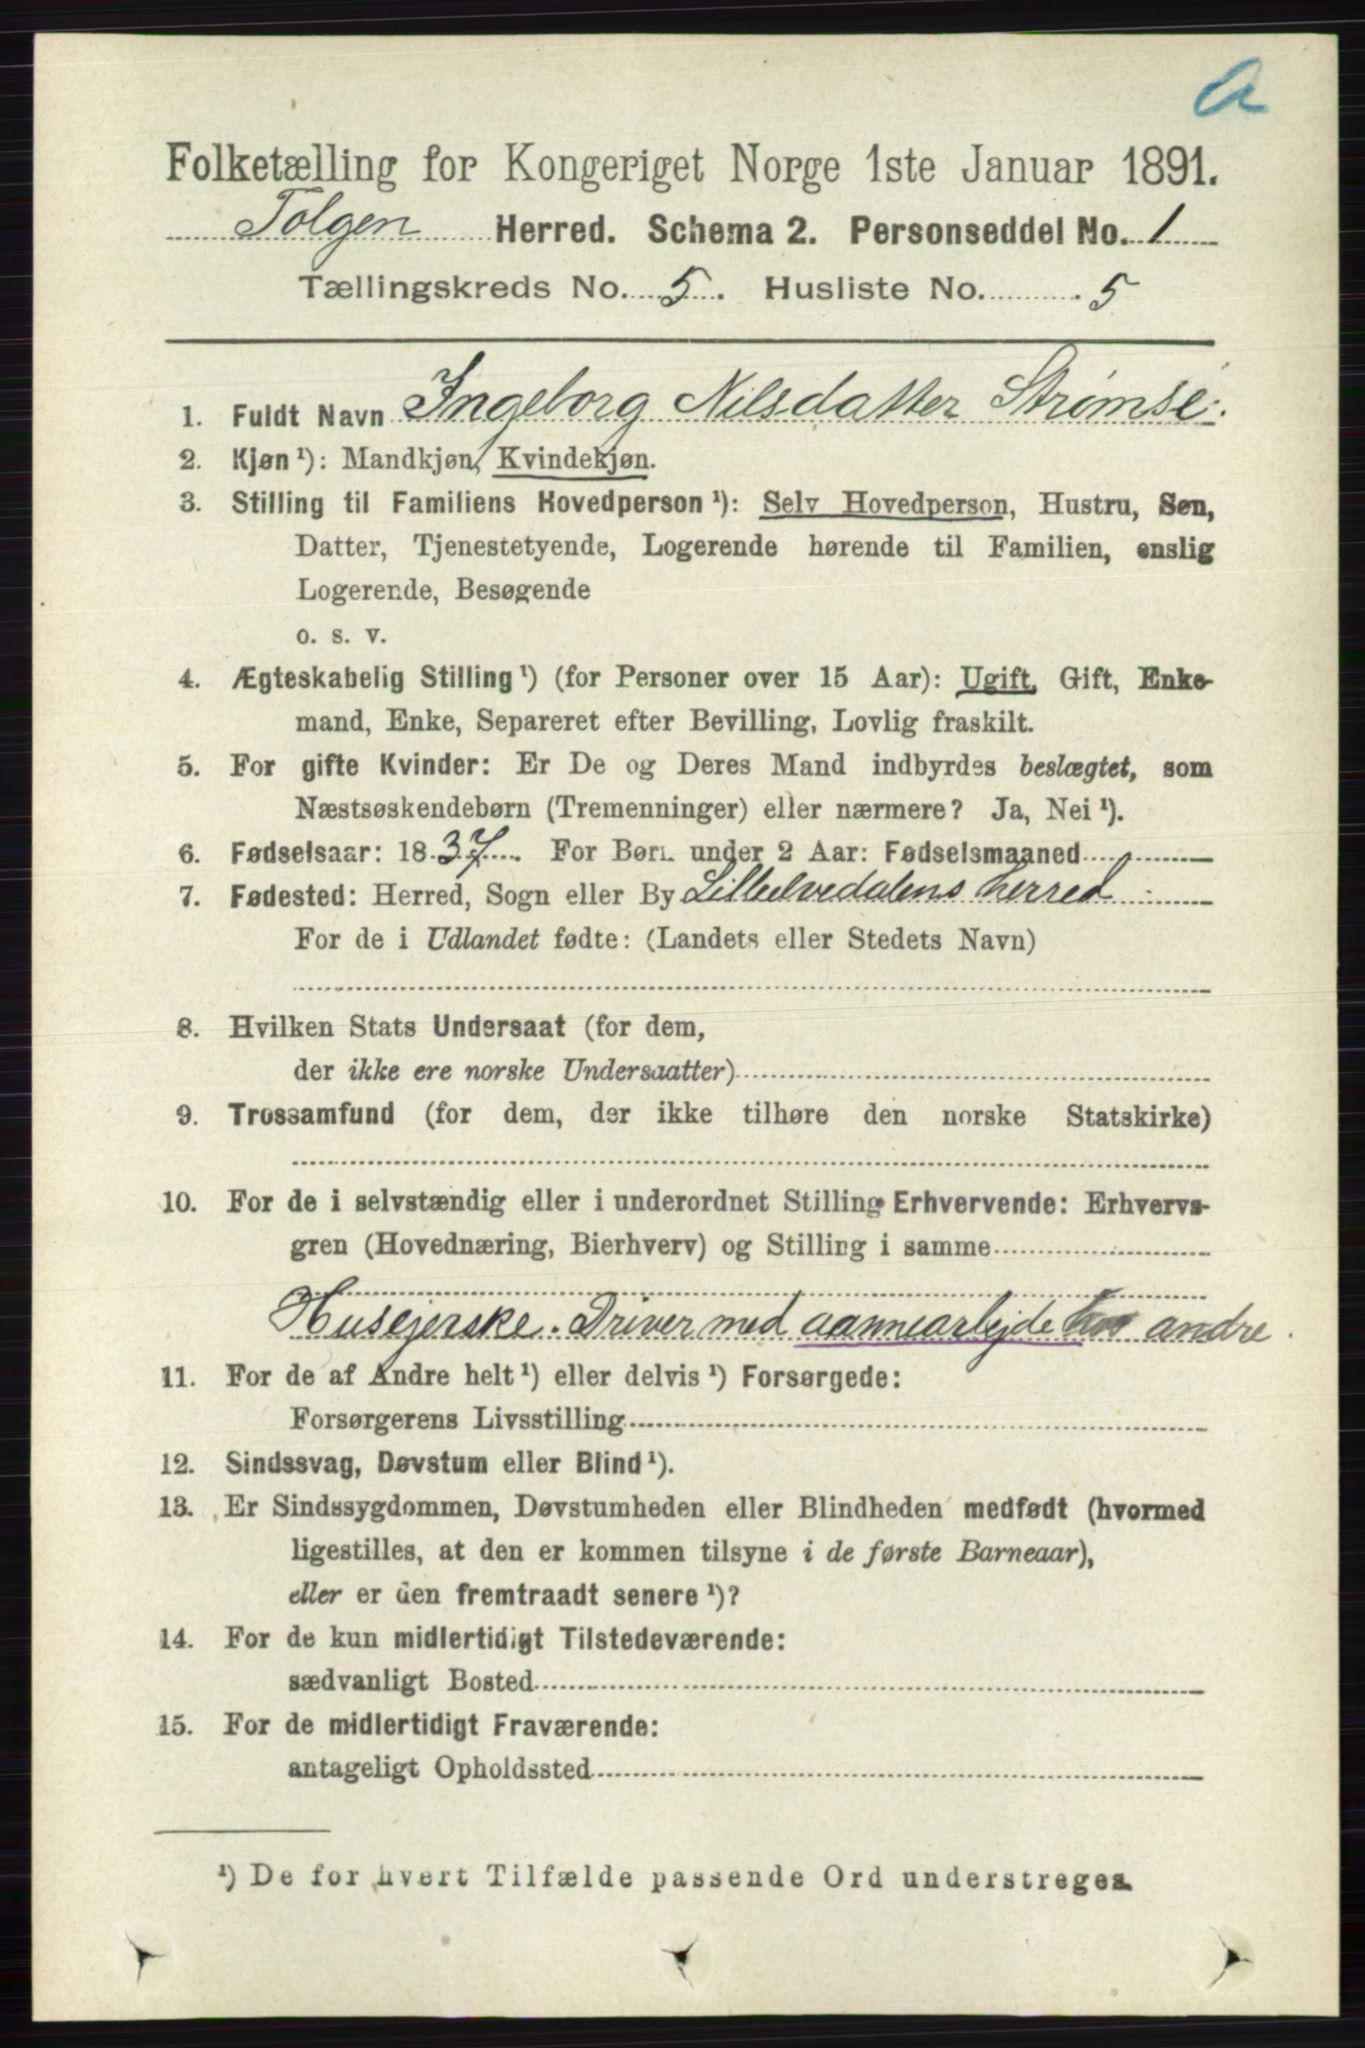 a
Folketælling for Kongeriget Norge 1ste Januar 1891.
Tolgen Herred. Schema 2. Personseddel No. 1
Tællingskreds No. 5. Husliste No. 5
1. Fuldt Navn Ingeborg Nilsdatter Strømsé.
2. Kjøn¹): Mandkjøn, Kvindekjøn.
3. Stilling til Familiens Hovedperson¹): Selv Hovedperson, Hustru, Søn,
Datter, Tjenestetyende, Logerende hørende til Familien, enslig
Logerende, Besøgende
o. s. v.
4. Ægteskabelig Stilling¹) (for Personer over 15 Aar): Ugift, Gift, Enke-
mand, Enke, Separeret efter Bevilling, Lovlig fraskilt.
5. For gifte Kvinder: Er De og Deres Mand indbyrdes beslægtet, som
Næstsøskendebørn (Tremenninger) eller nærmere? Ja, Nei¹).
6. Fødselsaar: 1837. For Børn under 2 Aar: Fødselsmaaned
7. Fødested: Herred, Sogn eller By Lilleelvedalens herred
For de i Udlandet fødte: (Landets eller Stedets Navn)
8. Hvilken Stats Undersaat (for dem,
der ikke ere norske Undersaatter)
9. Trossamfund (for dem, der ikke tilhøre den norske Statskirke)
10. For de i selvstændig eller i underordnet Stilling Erhvervende: Erhvervs-
gren (Hovednæring, Bierhverv) og Stilling i samme
Husejerske. Driver med aannearbejde hos andre.
11. For de af Andre helt¹) eller delvis¹) Forsørgede:
Forsørgerens Livsstilling
12. Sindssvag, Døvstum eller Blind¹).
13. Er Sindssygdommen, Døvstumheden eller Blindheden medfødt (hvormed
ligestilles, at den er kommen tilsyne i de første Barneaar),
eller er den fremtraadt senere¹)?
14. For de kun midlertidigt Tilstedeværende:
sædvanligt Bosted
15. For de midlertidigt Fraværende:
antageligt Opholdssted
¹) De for hvert Tilfælde passende Ord understreges.